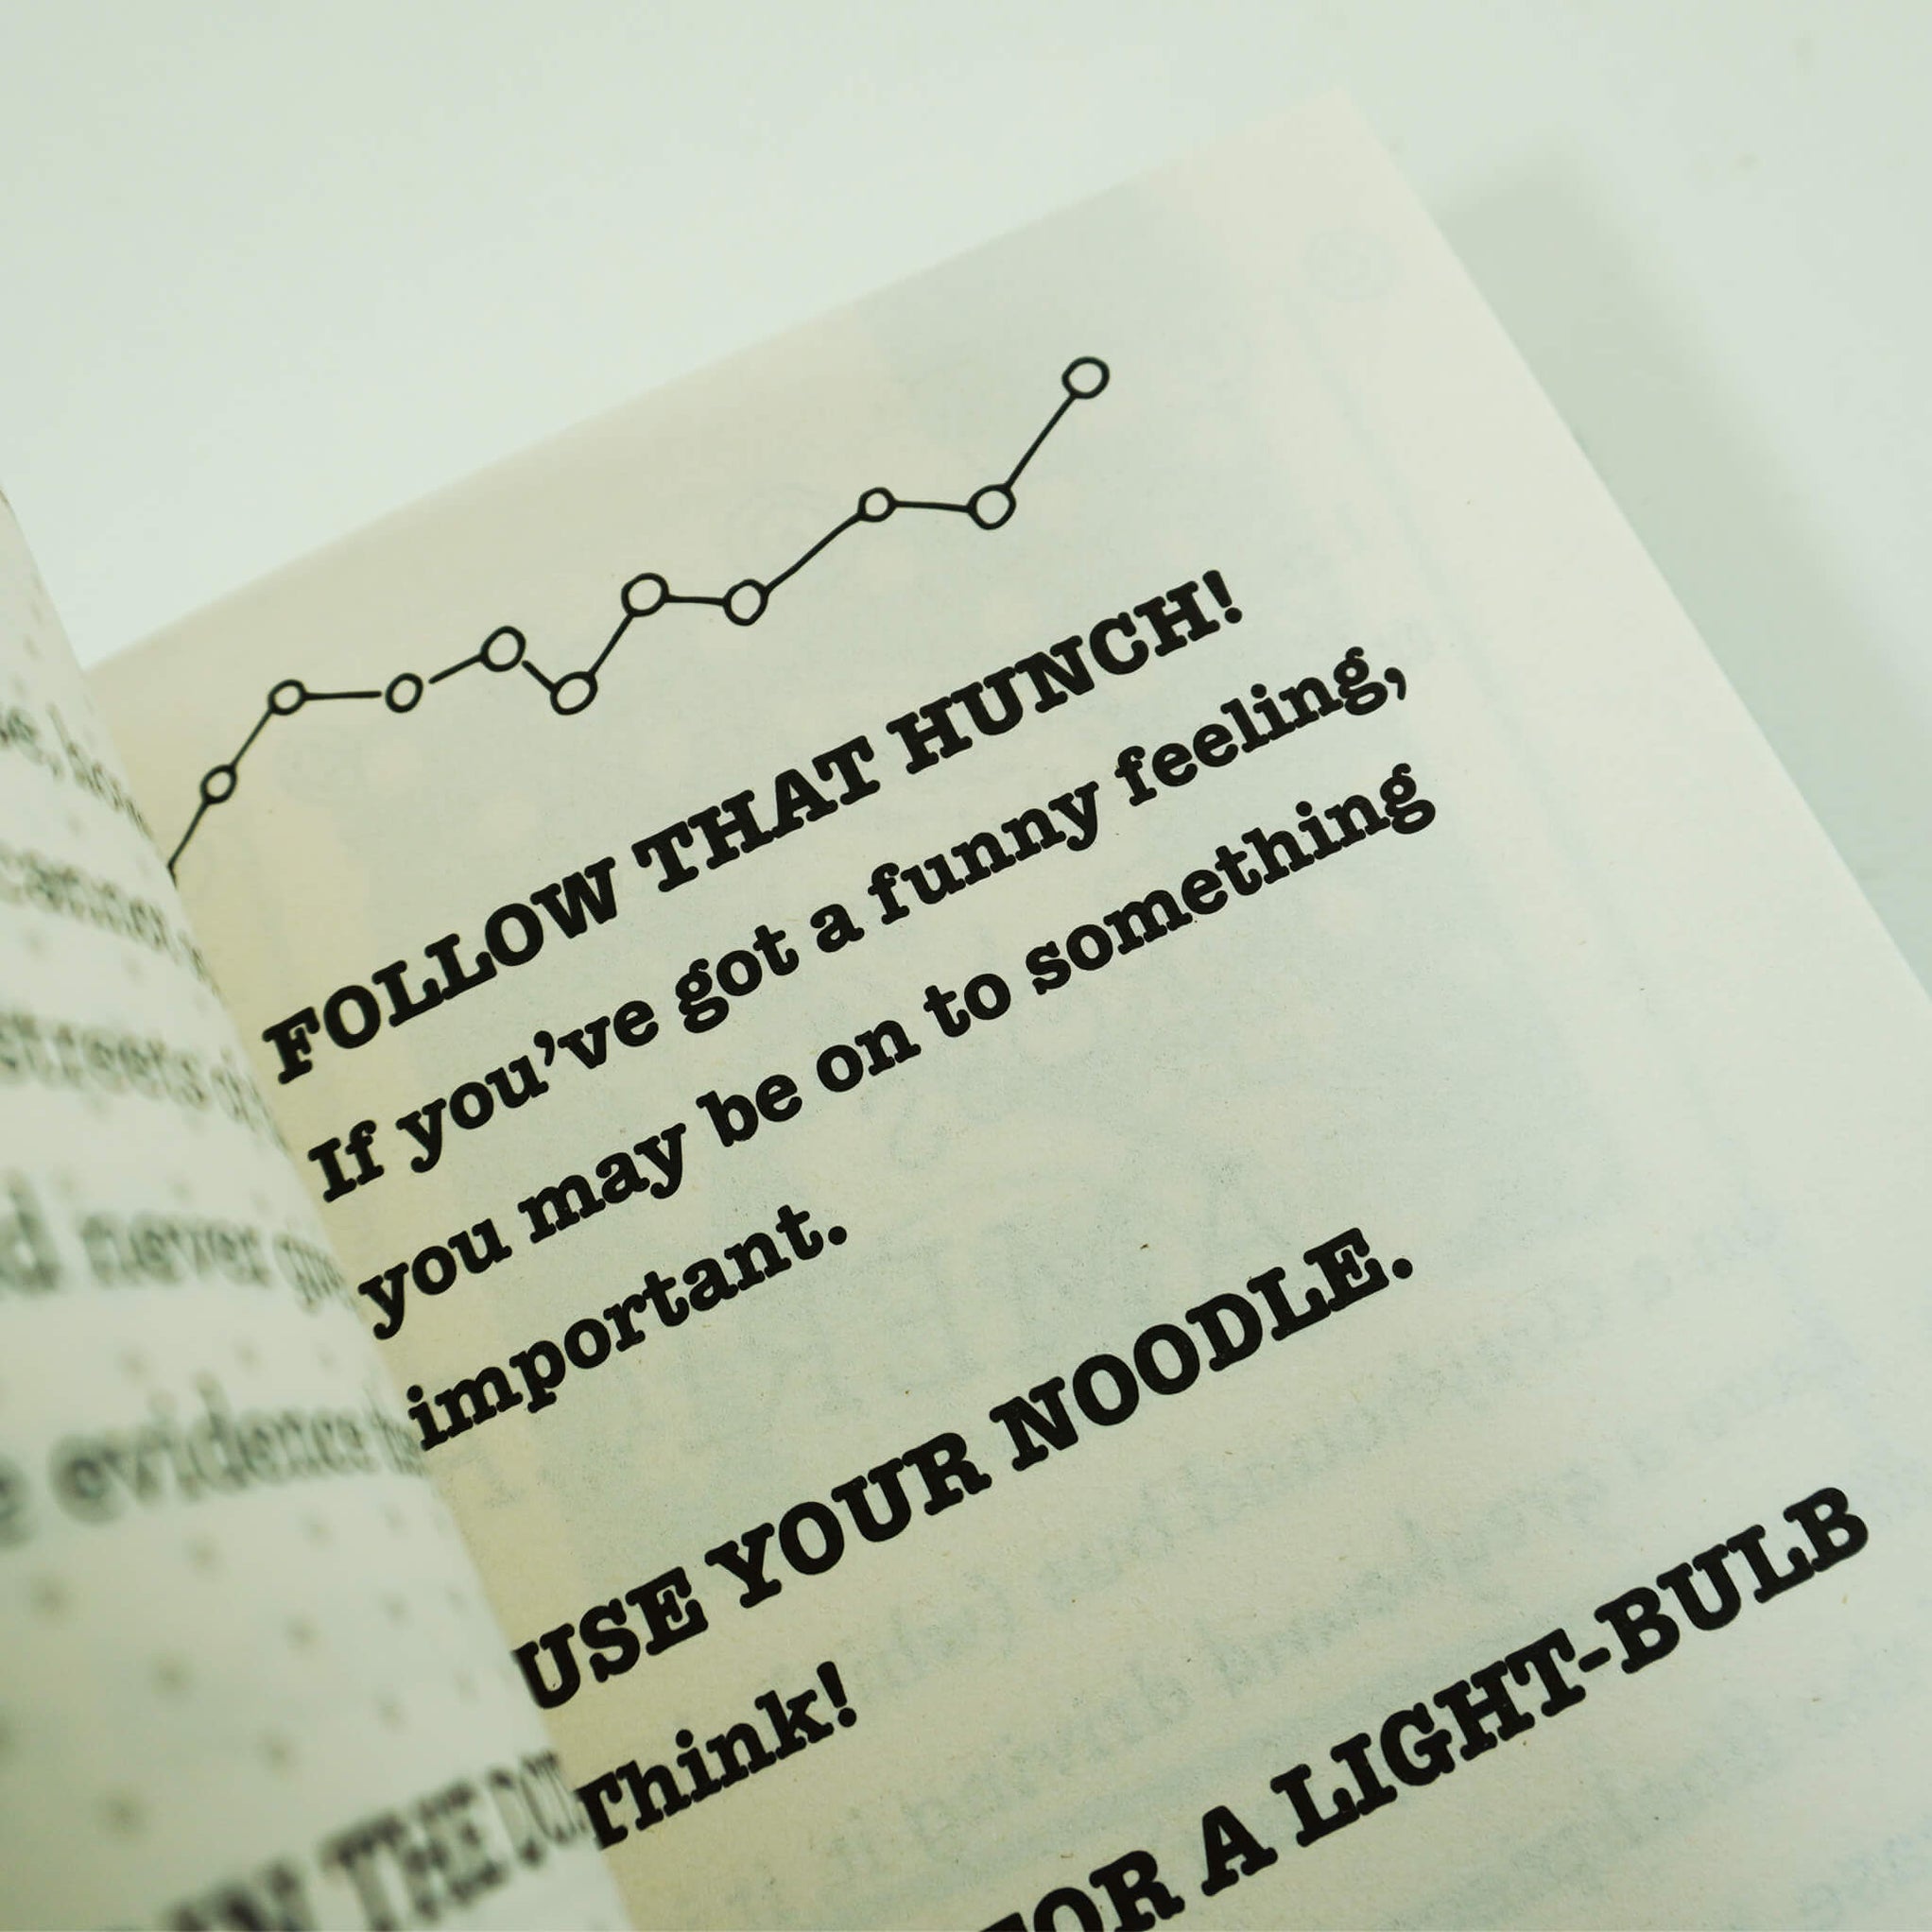 d never
e evidence
THE
FOLLOW THAT HUNCH!
If you've got a funny feeling,
you may be on to something
important.
USE YOUR NOODLE.
Think!
FOR A LIGHT-BULB